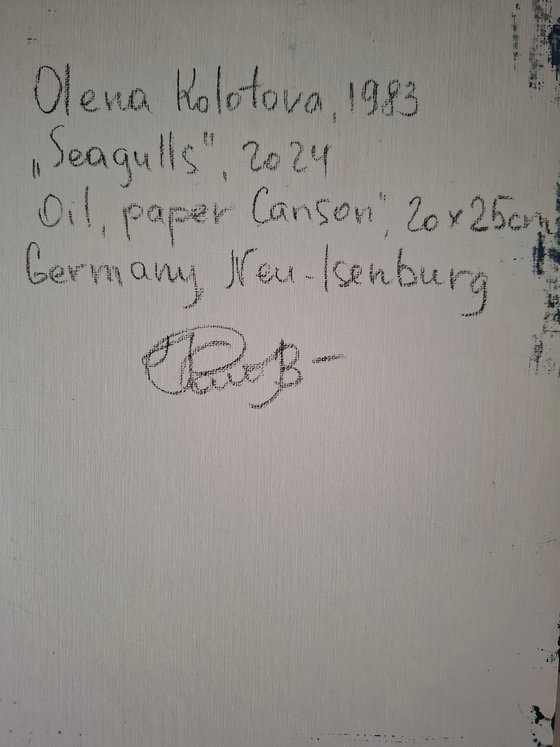 Olena Kolotova, 1983
„Seagulls", 2024
Oil, paper Canson", 20x25cm
Germany Neu-Isenburg